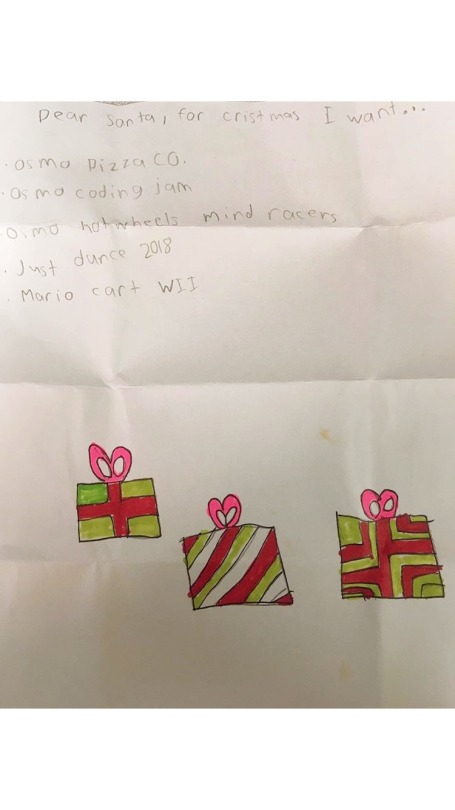 Dear Santa, for cristmas I want...
· osmo pizza co.
· Osmo coding jam
· Osmo hotwheels mind racers
· Just dunce 2018
· Mario cart WII